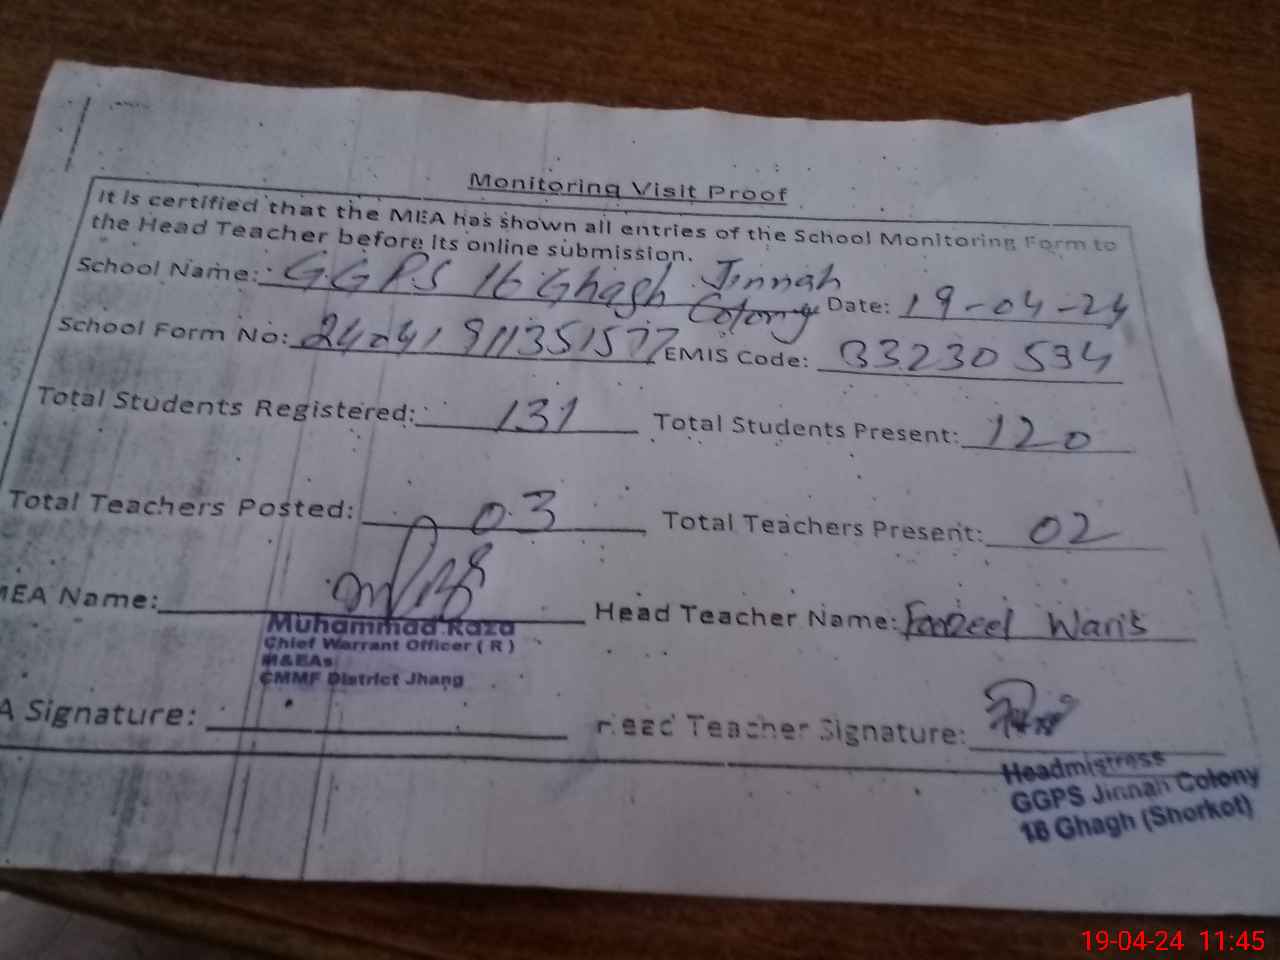 Monitoring Visit Proof
It is certified that the MEA has shown all entries of the School Monitoring Form to
the Head Teacher before its online submission.
School Name: G.G.P.S 16 Ghagh Jinnah Colony Date: 19-04-24
School Form No: 24041911351577 EMIS Code: 33230534
Total Students Registered: 131 Total Students Present: 120
Total Teachers Posted: 03 Total Teachers Present: 02
MEA Name: Head Teacher Name: Waris
Muhammad Raza
Chief Warrant Officer ( R )
M&EAs
CMMF District Jhang
A Signature: Head Teacher Signature:
Headmistress
GGPS Jinnah Colony
16 Ghagh (Shorkot)
19-04-24 11:45